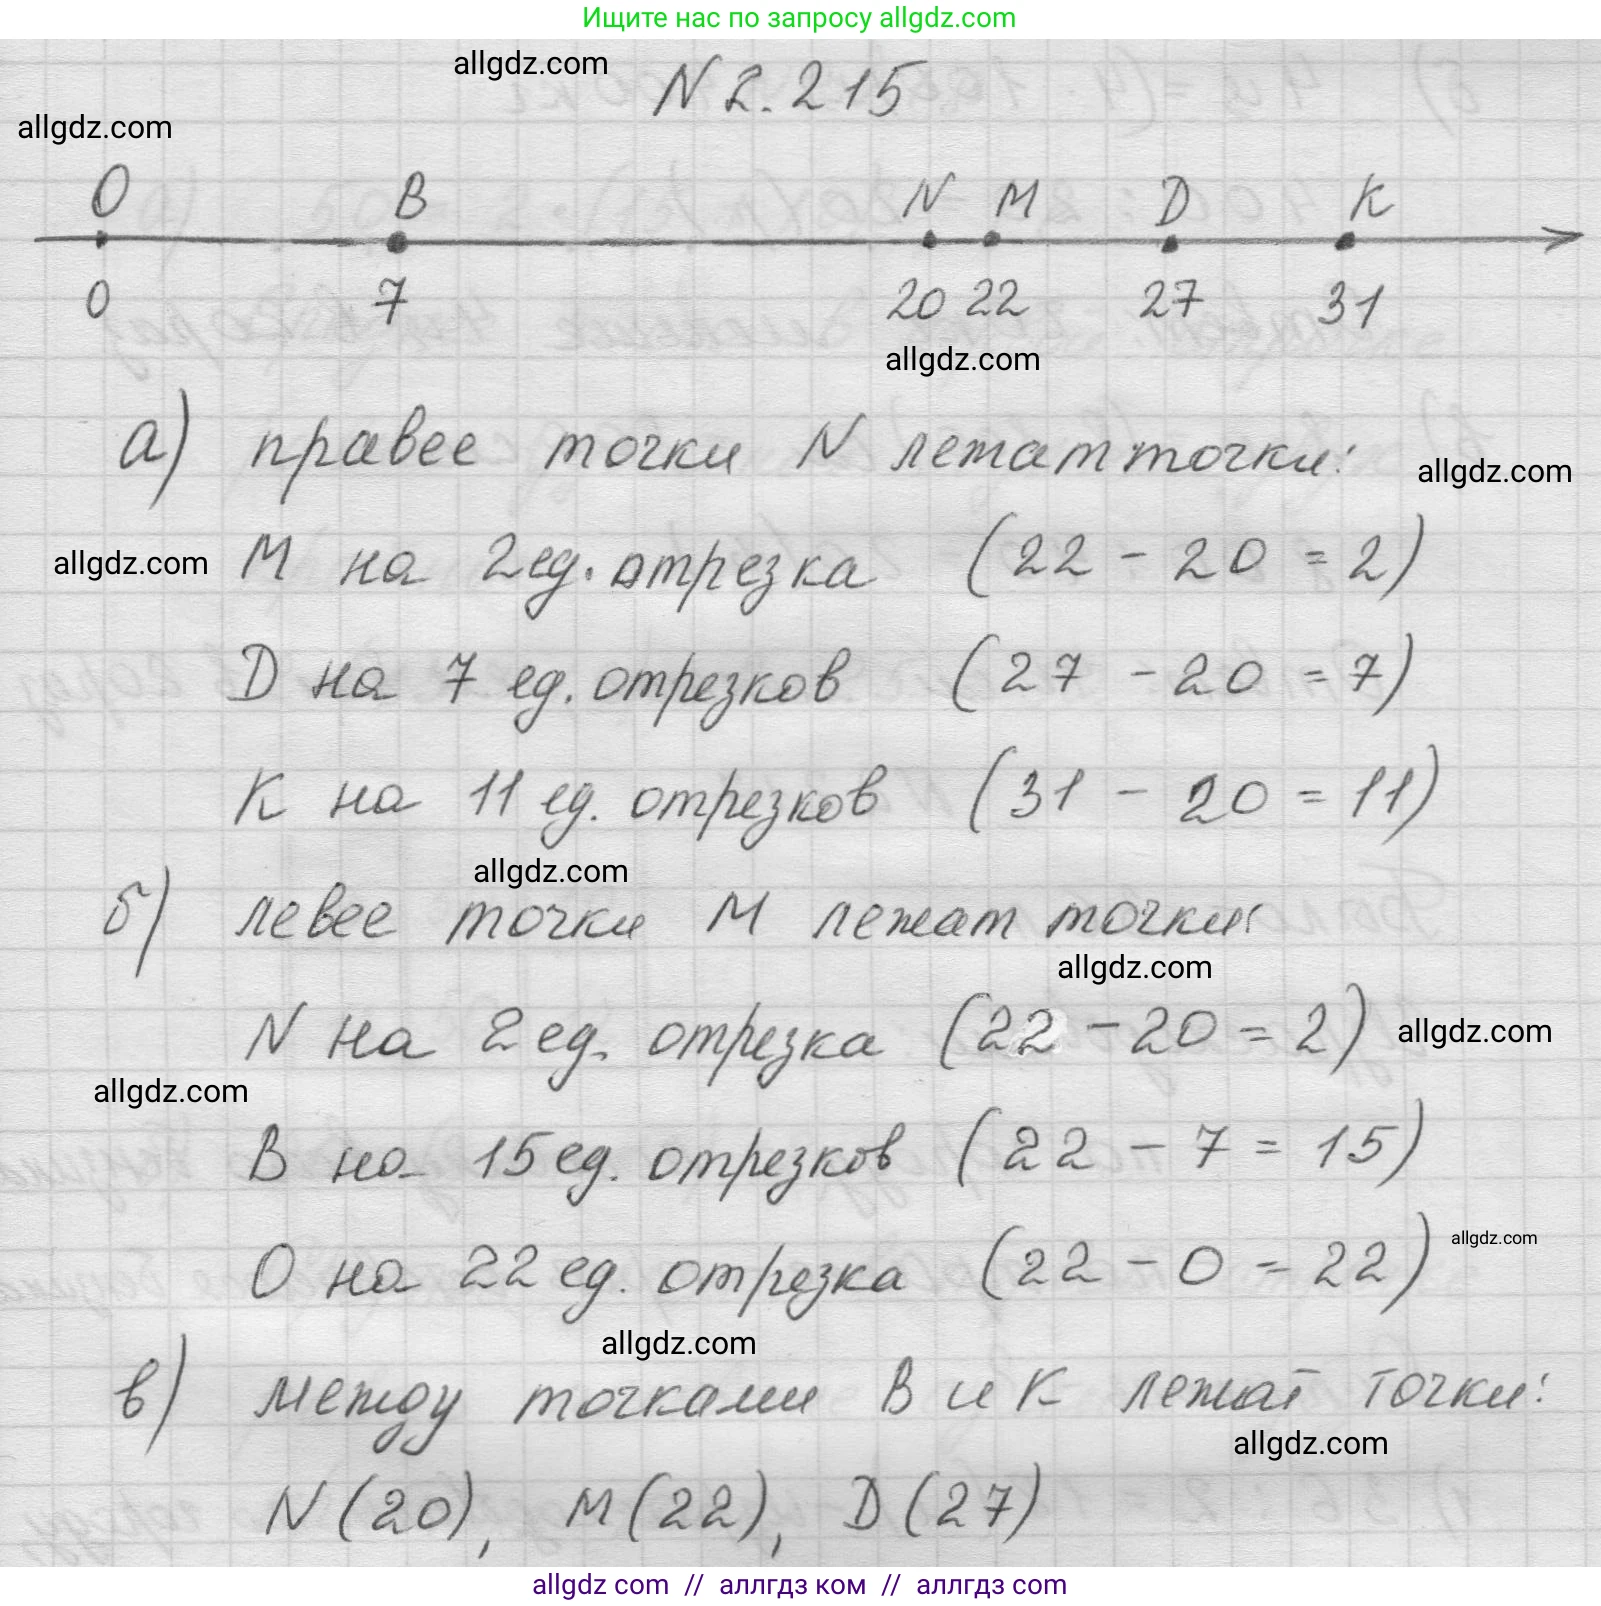 Ищите нас по запросу allgdz.com
allgdz.com
N 2.215
allgdz.com
O B N M D K
0 7 20 22 27 31
allgdz.com
а) правее точки N лежат точки:
allgdz.com
allgdz.com
M на 2 ед. отрезка (22 - 20 = 2)
D на 7 ед. отрезков (27 - 20 = 7)
K на 11 ед. отрезков (31 - 20 = 11)
allgdz.com
б) левее точки M лежат точки:
allgdz.com
N на 2 ед. отрезка (22 - 20 = 2)
allgdz.com
allgdz.com
B на 15 ед. отрезков (22 - 7 = 15)
O на 22 ед. отрезка (22 - 0 = 22)
allgdz.com
allgdz.com
в) между точками B и K лежат точки:
allgdz.com
N (20), M (22), D (27)
allgdz com // аллгдз ком // аллгдз com